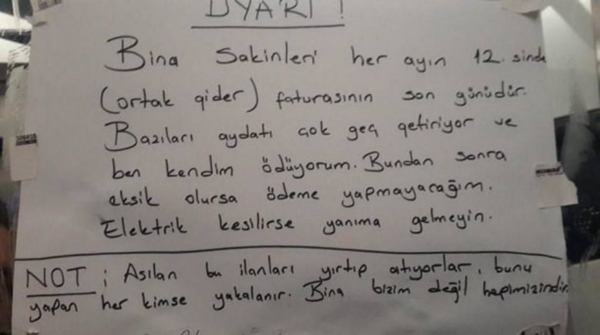 UYARI !
Bina Sakinleri her ayın 12.sinde
(ortak gider) faturasının son günüdür.
Bazıları aydatı çok geç getiriyor ve
ben kendim ödüyorum. Bundan sonra
eksik olursa ödeme yapmayacağım.
Elektrik kesilirse yanıma gelmeyin.
NOT ; Asılan bu ilanları yırtıp atıyorlar, bunu
yapan her kimse yakalanır. Bina bizim değil hepimizindir.